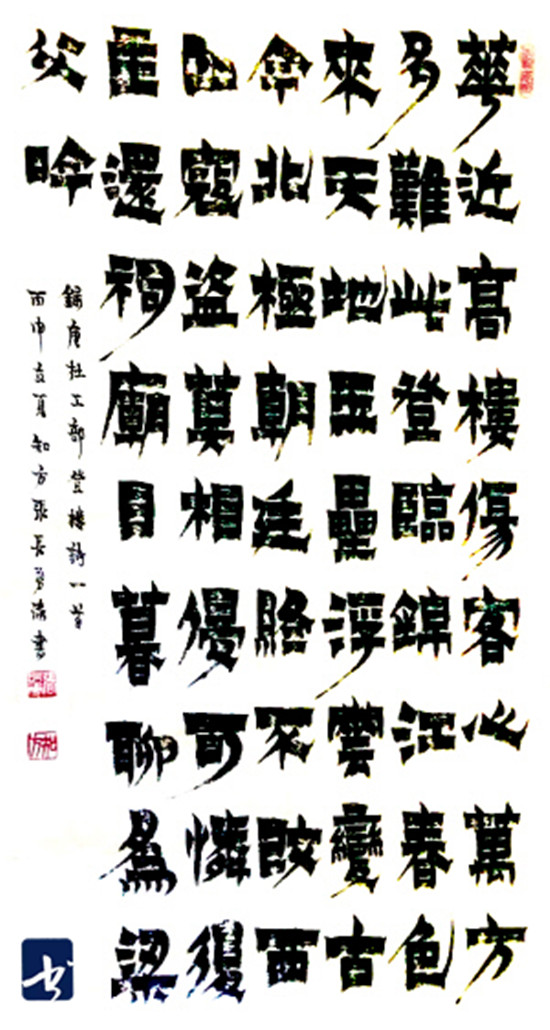 華近高樓傷客心萬方
多難此登臨錦江春色
來天地玉壘浮雲變古
今北極朝廷終不改西
山寇盜莫相侵可憐後
主還祠廟日暮聊為梁
父吟
錄唐杜工部登樓詩一首
丙申立夏知方張長勇漆書
知方
书